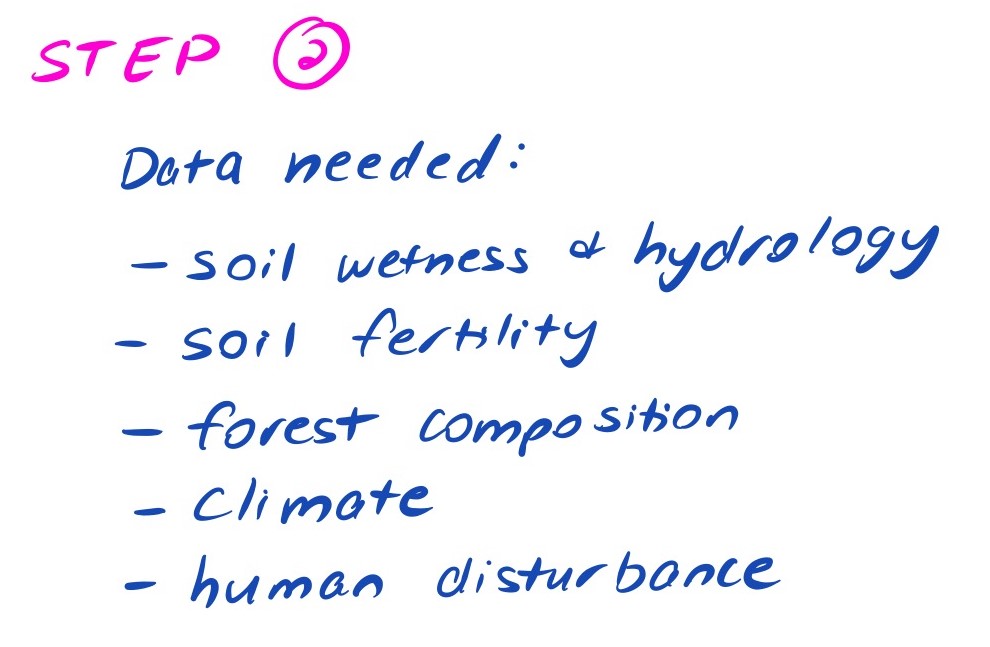 STEP ②
Data needed:
- soil wetness & hydrology
- soil fertility
- forest composition
- Climate
- human disturbance